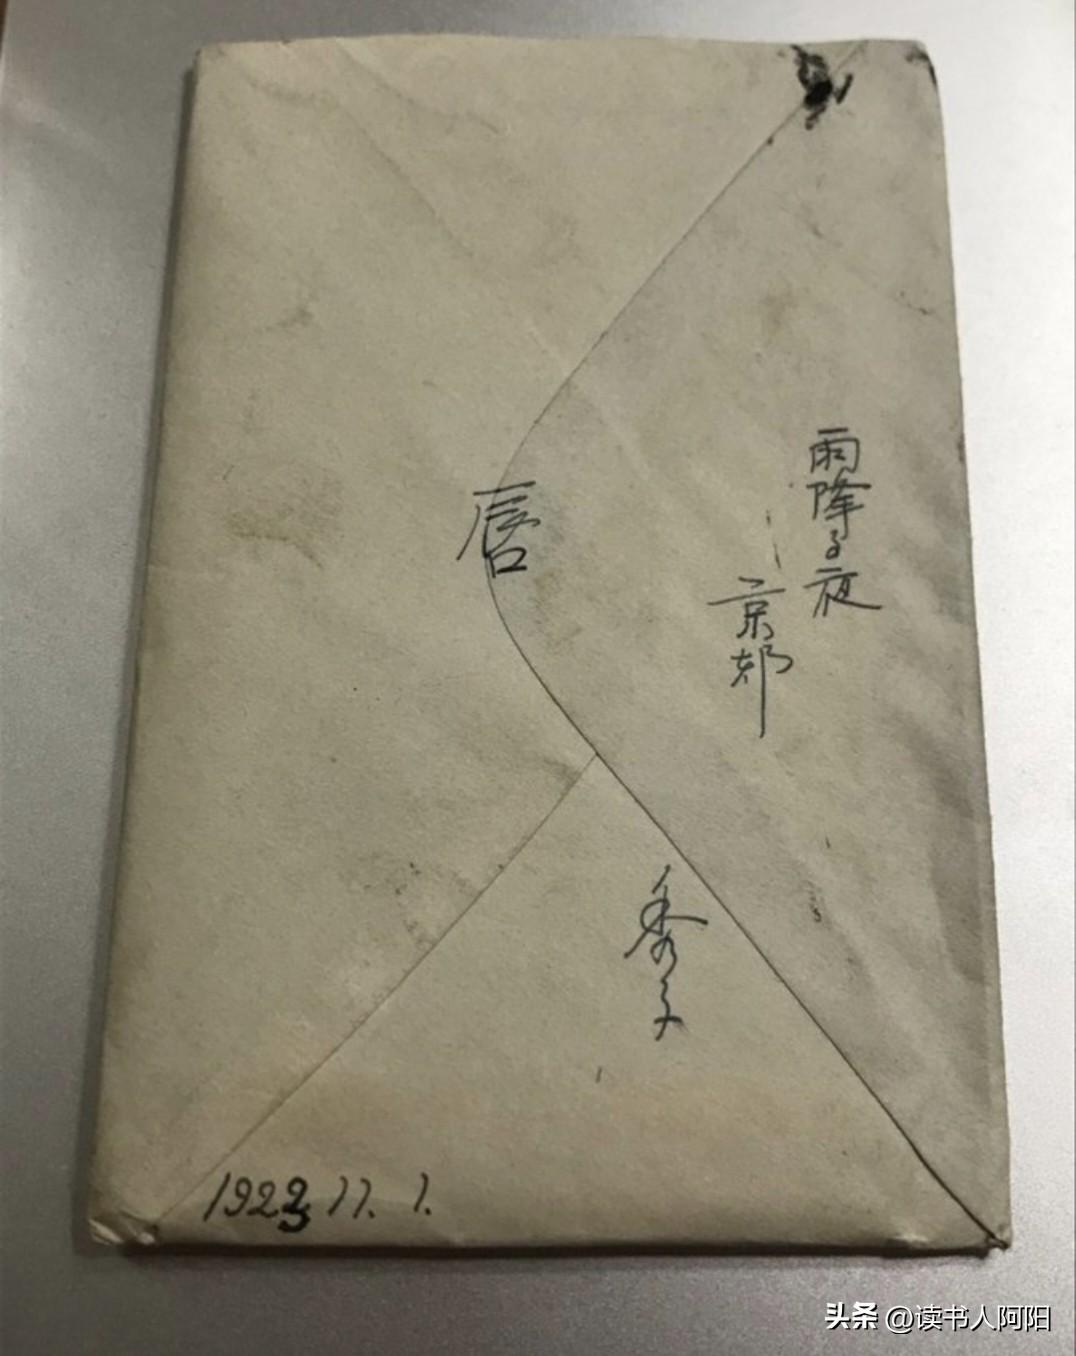 雨降る夜
京都
秀子
唇
1923 11. 1.
头条 @读书人阿阳